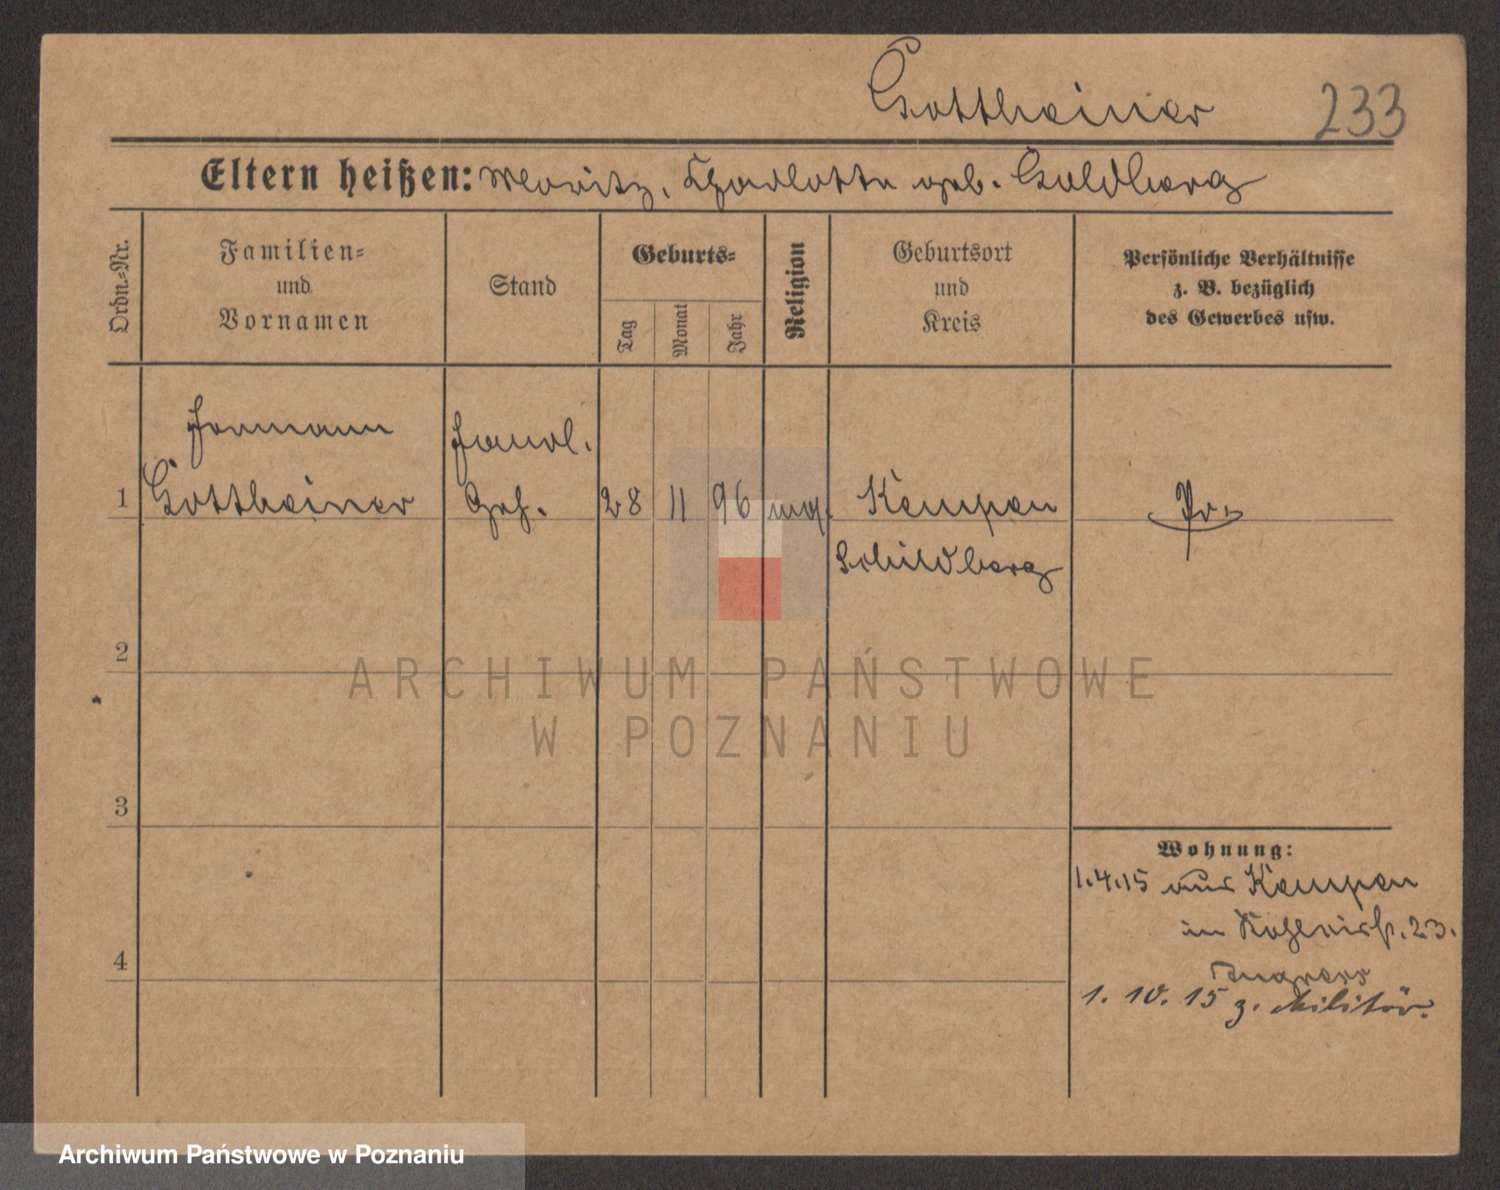 Gottheiner
233
Eltern heißen: Moritz, Charlotte geb. Goldberg
Ordn.-Nr.
Familien-
und
Vornamen
Stand
Geburts-
Tag
Monat
Jahr
Religion
Geburtsort
und
Kreis
Persönliche Verhältnisse
z. B. bezüglich
des Gewerbes usw.
Hermann
Handl.
1 Gottheiner Geh. 28 11 96 mos. Kempen Pr.
Schildberg
2
ARCHIWUM PAŃSTWOWE
W POZNANIU
3
Wohnung:
1.4.15 aus Kempen
in 23.
4
1. 10. 15 z. Militär.
Archiwum Państwowe w Poznaniu